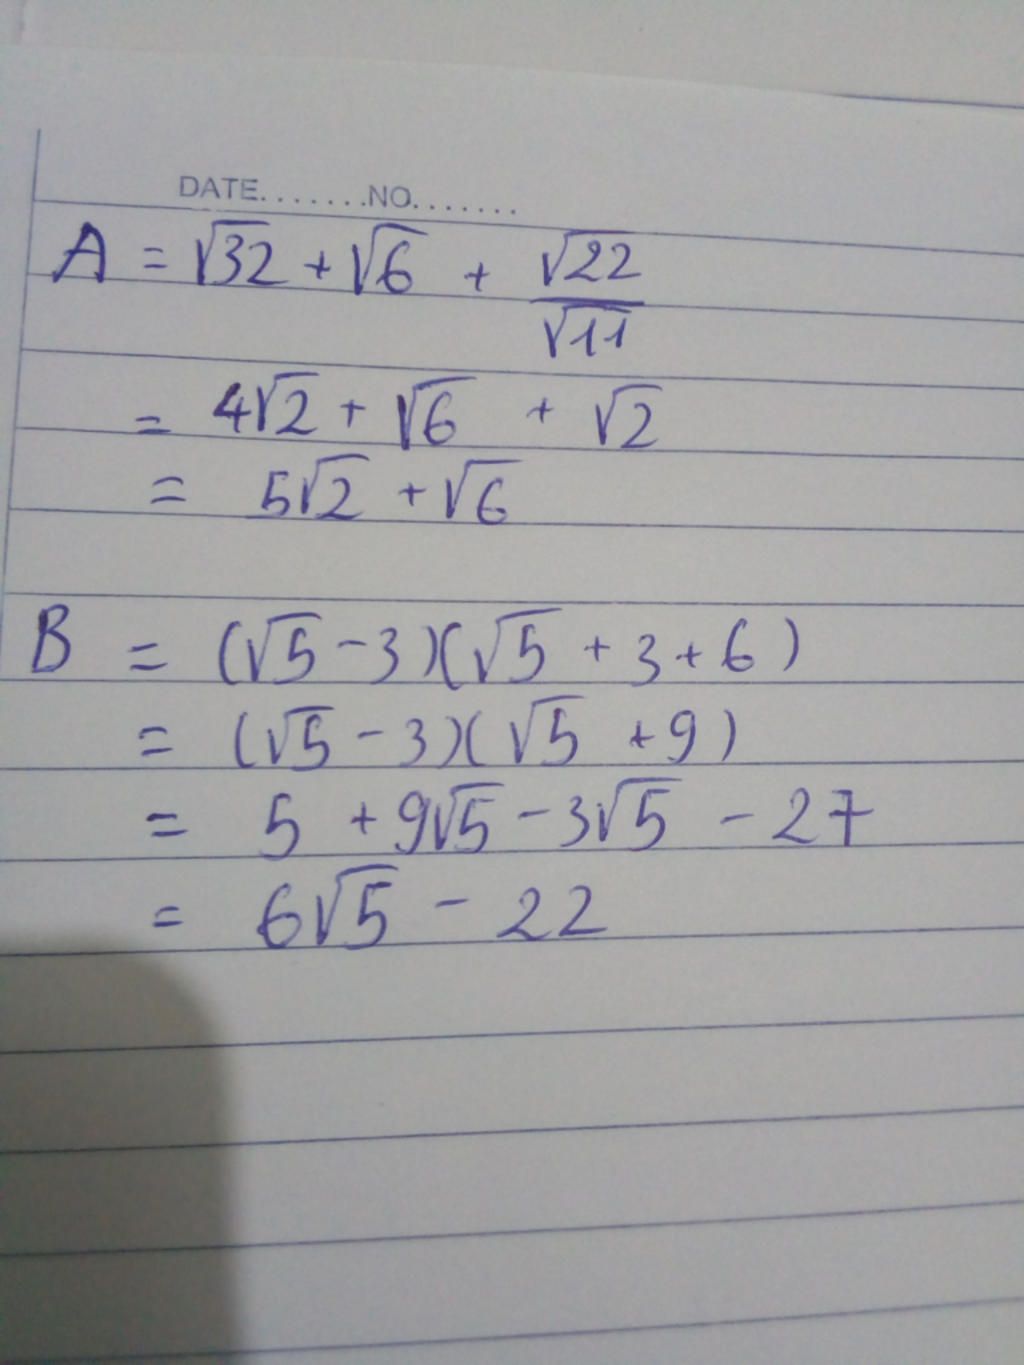 DATE........NO.......
A = √32 + √6 + √22/√11
= 4√2 + √6 + √2
= 5√2 + √6
B = (√5 - 3)(√5 + 3 + 6)
= (√5 - 3)(√5 + 9)
= 5 + 9√5 - 3√5 - 27
= 6√5 - 22